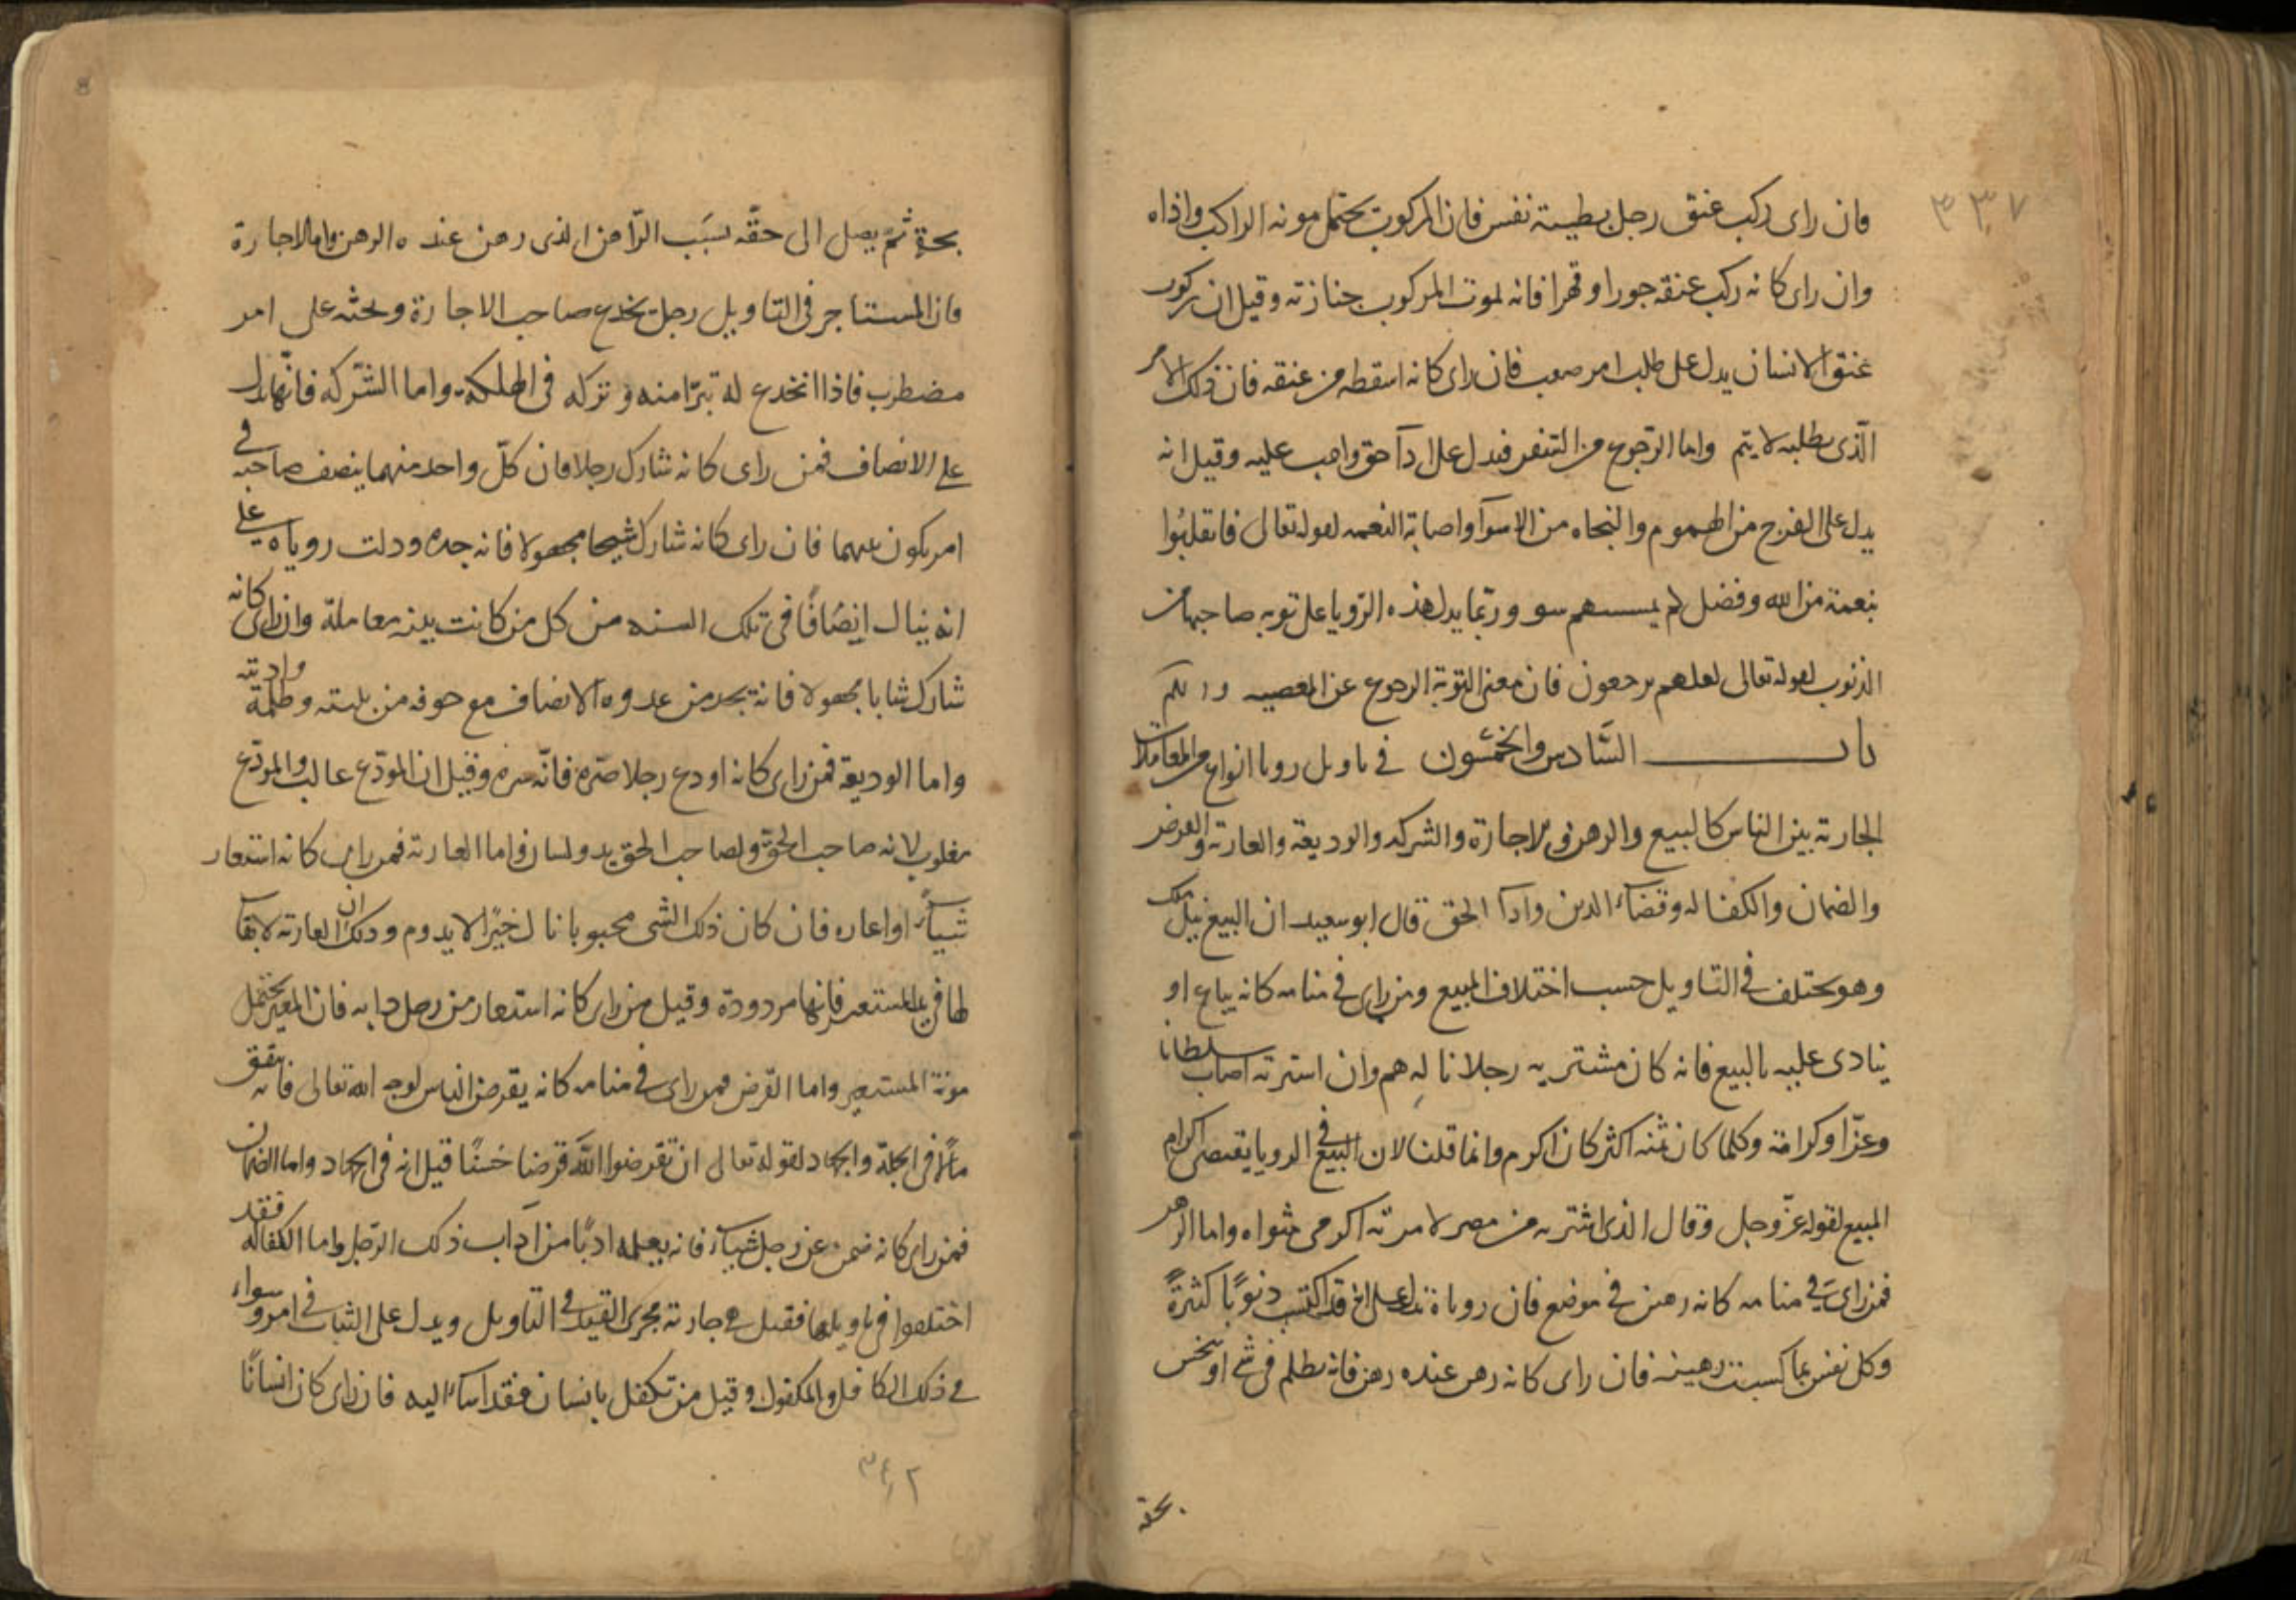 ٣٣٧
فان راى ركب عنق رجل بطيبة نفس فان المركوب يحتمل مونه الراكب واذاه
وان راى كانه ركب عنقه جورا وقهرا فانه لموت المركوب جنازته وقيل ان ركوب
عنق الانسان يدل على طلب امر صعب فان راى كانه اسقطه من عنقه فان ذلك الامر
الّذى يطلبه لا يتم واما الرّجوع من السفر فيدل على ادآ حق واجب عليه وقيل انه
يدل على الفرج من الهموم والنجاه من الاسوآ واصابة النعمه لقوله تعالى فانقلبُوا
بنعمة من الله وفضل لم يمسسهم سو وربّما يدل هذه الرّويا على توبه صاحبها من
الذنوب لقوله تعالى لعلهم يرجعون فان معنى التوبة الرجوع عن المعصيه
باب السَّادس والخمسُون فى تاويل رويا انواع من المعاملات
الجارية بين الناس كالبيع والرهن والاجارة والشركه والوديعة والعارية والقرض
والضمان والكفاله وقضآء الدين وادآ الحق قال ابو سعيد ان البيع يزيل ملك
وهو يختلف فى التاويل حسب اختلاف المبيع ومن راى فى منامه كانه يباع او
ينادى عليه بالبيع فانه كان مشتريه رجلا ناله هم وان اشترته اصاب سلطانا
وعزّا وكرامة وكلما كان ثمنه اكثر كان اكرم وانما قلنا لان البيع فى الرويا يقتضى اكرام
المبيع لقوله عزّ وجل وقال الذى اشتريه من مصر لامرته اكرمى مثواه واما الرهن
فمن راى فى منامه كانه رهن فى موضع فان روياه تدل على انه قد اكتسب ذنوبًا كثيرةً
وكل نفس بما كسبت رهينه فان راى كانه رهن عنده رهن فانه يظلم فى شى او يبخس
بحقه
بحقهٍ ثمّ يصل الى حقّه بسَبب الرّاهن الذى رهن عنده الرهن واما الاجارة
فان المستاجر فى التاويل رجل يخدع صاحب الاجارة ويحثه على امر
مضطرب فاذا انخدع له تبرّا منه وتركه فى الهلكة واما الشّركه فانّها تدل
على الانصاف فمن راى كانه شارك رجلا فان كلّ واحد منهما ينصف صاحبه فى
امر يكون بينهما فان راى كانه شارك شيخا مجهولا فانه جده ودلت روياه على
انه ينال انِصَافًا فى تلك السنه من كل من كانت بينه معاملة وان راى كانه
شارك شابا مجهولا فانه يجد من عدوه الانصاف مع خوفه من بليته وظلمة
واما الوديعة فمن راى كانه اودع رجلا صرّه فانّه سره وقيل ان المودّع غالب والمودَع
مغلوب لانه صاحب الحق ولصاحب الحق يد ولسان واما العارية فمن راى كانه استعار
شيأً او اعاره فان كان ذلك الشى محبوبا نال خيرًا لا يدوم وذلك ان العارية لا بقآ
لها فى يد المستعير فانها مردودة وقيل من راى كانه استعار من رجل دابه فان المعير يحتمل
مونة المستعير واما القرض فمن راى فى منامه كانه يقرض الناس لوجه الله تعالى فانه ينفق
مالًا فى الجهاد لقوله تعالى ان تقرضوا الله قرضا حسنًا قيل انه فى الجهاد واما الضمان
فمن راى كانه ضمن عن رجل شيأ فانه يعلمه ادبًا من آداب ذلك الرّجل واما الكفاله فقد
اختلفوا فى تاويلها فقيل هى جارية مجرى القيد فى التاويل ويدل على الثبات فى امر وسواء
فى ذلك الكافل والمكفول وقيل من تكفل بانسان فقد اسآء اليه فان راى كان انسانًا